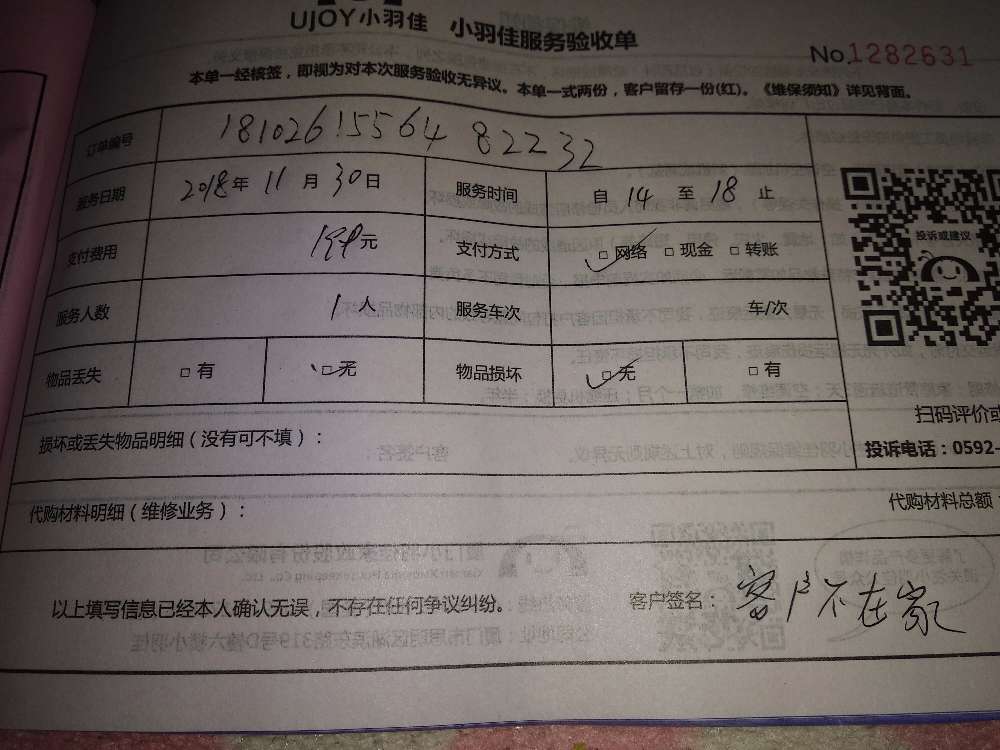 UJOY小羽佳 小羽佳服务验收单
No.1282631
本单一经核签，即视为对本次服务验收无异议。本单一式两份，客户留存一份(红)。《维保须知》详见背面。
订单编号 1810261556482232
服务日期 2018年11月30日 服务时间 自14至18止
支付费用 199元 支付方式 □网络 □现金 □转账
投诉或建议
服务人数 1人 服务车次 车/次
物品丢失 □有 □无 物品损坏 □无 □有
扫码评价或
损坏或丢失物品明细（没有可不填）：
投诉电话：0592-
代购材料明细（维修业务）： 代购材料总额
以上填写信息已经本人确认无误，不存在任何争议纠纷。 客户签名：客户不在家